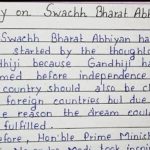 y on Swachh Bharat Abh
Swachh Bharat Abhiyan ha
started by the thoughts
dhiji because Gandhiji ha
med before independence
country should also be cl
foreign countries but due
e reason the dream could
ulfilled.
efore, Hon'ble Prime Minist
Modi took inspi